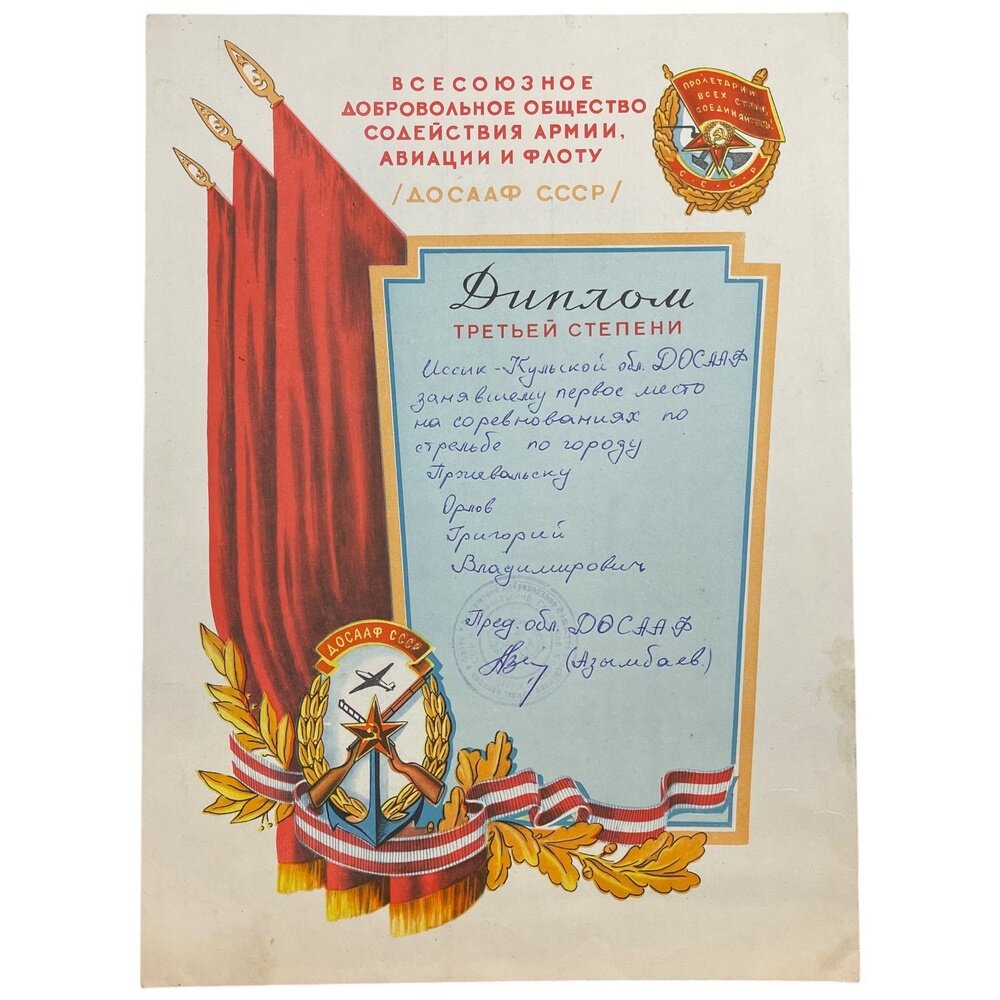 ВСЕСОЮЗНОЕ
ДОБРОВОЛЬНОЕ ОБЩЕСТВО
СОДЕЙСТВИЯ АРМИИ,
АВИАЦИИ И ФЛОТУ
/ДОСААФ СССР/
ПРОЛЕТАРИИ
ВСЕХ СТРАН,
СОЕДИНЯЙТЕСЬ!
С·С·С·Р
Диплом
ТРЕТЬЕЙ СТЕПЕНИ
Иссык-Кульской обл. ДОСААФ
занявшему первое место
на соревнованиях по
стрельбе по городу
Пржевальску
Орлов
Григорий
Владимирович
Пред. обл. ДОСААФ
(Азымбаев.)
ДОСААФ СССР